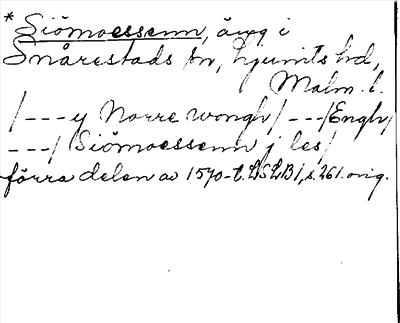 * Siömoessenn, äng i
Snårestads sn, Ljunits hd,
Malm. l.
/---y Norre wongh/---/Engh/
---/ Siömoessenn j les/
förra delen av 1570-t. LSLB1, s. 261. orig.